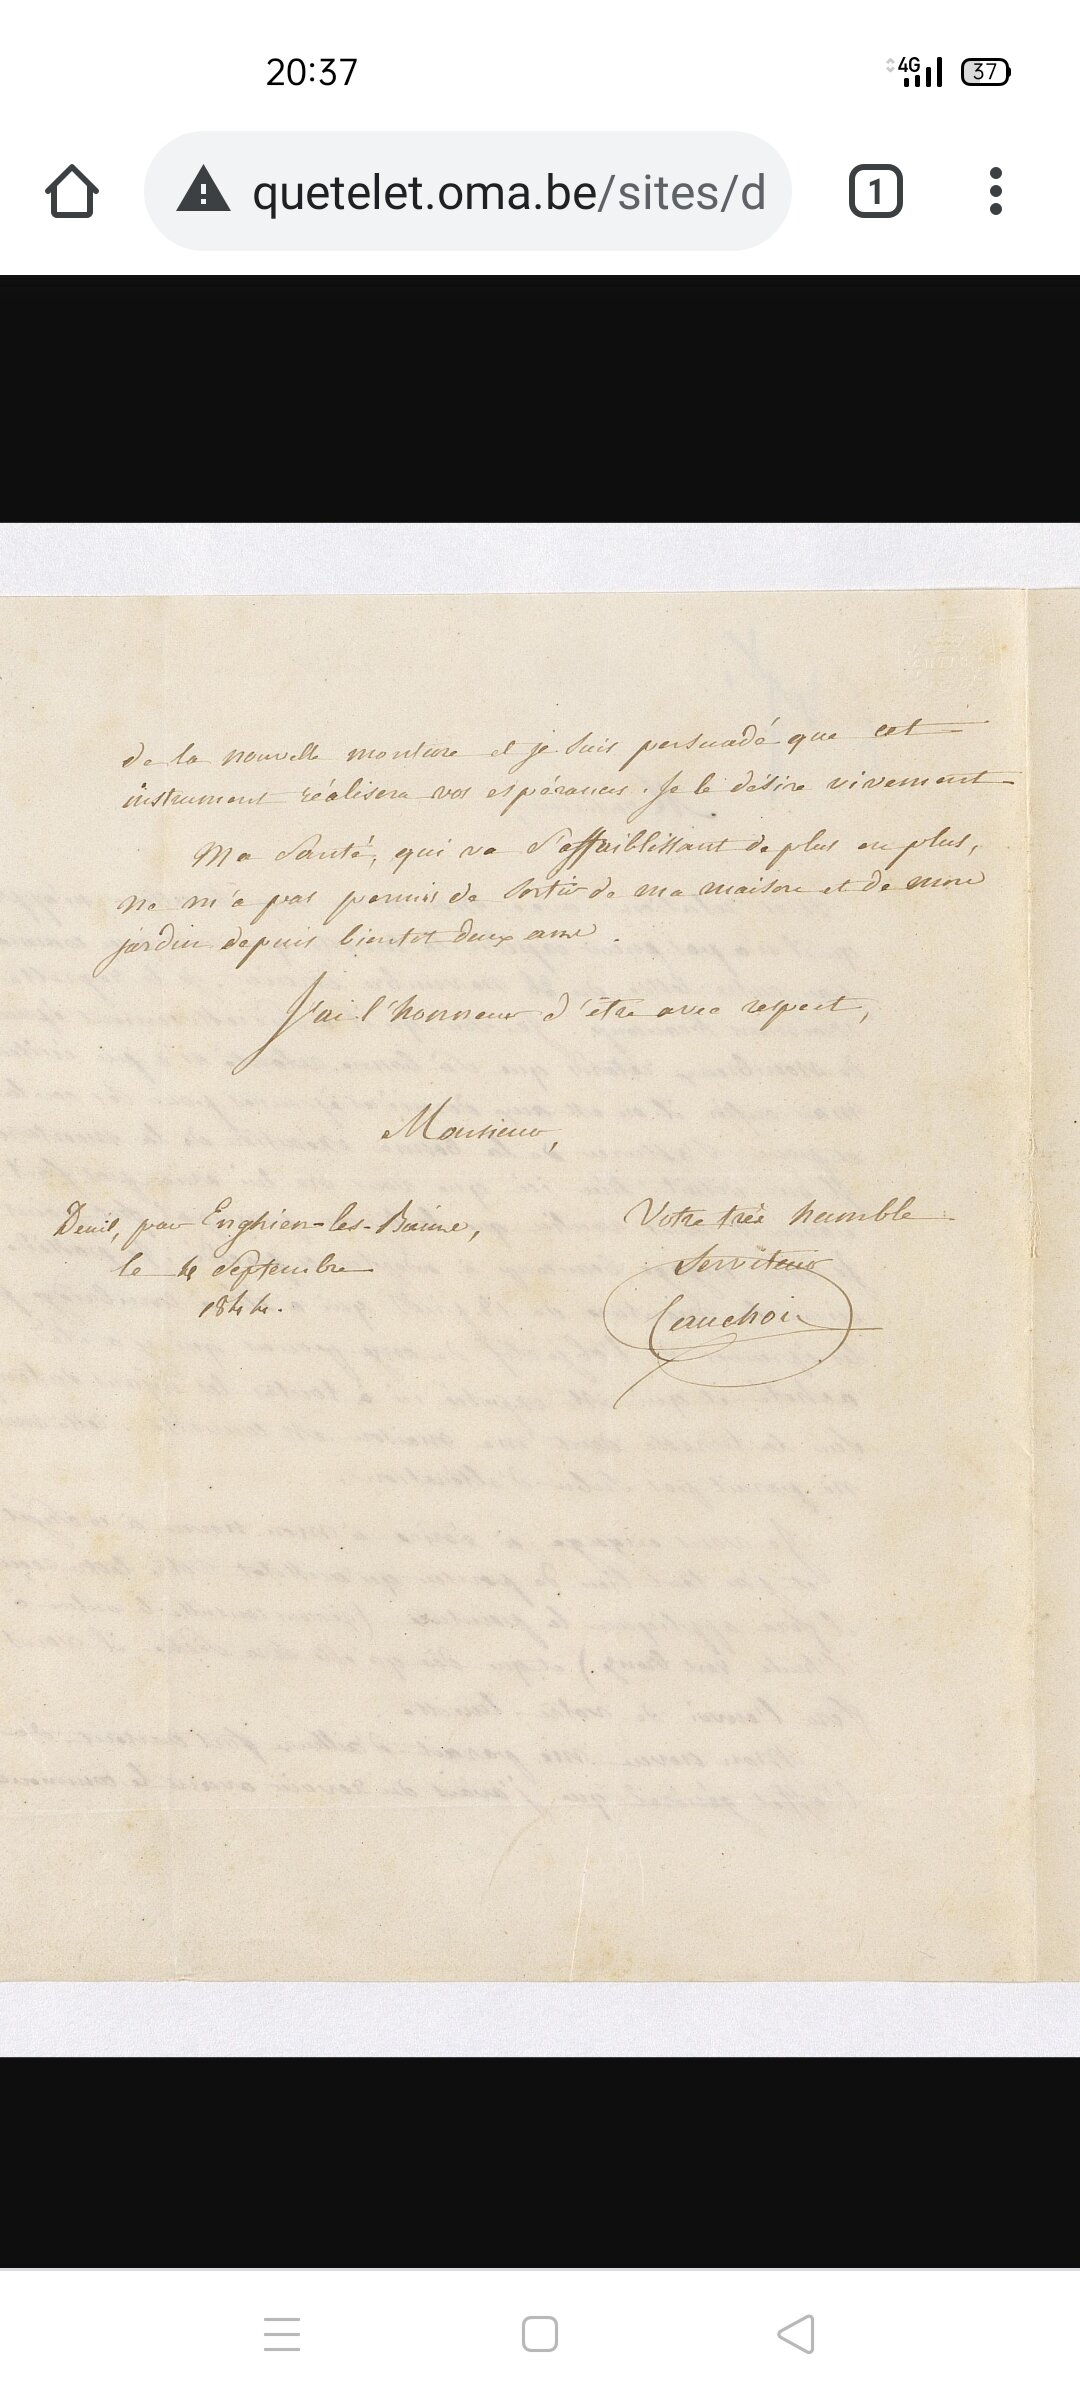 20:37
4G
37
quetelet.oma.be/sites/d
1
de la nouvelle monture et je suis persuadé que cet
instrument réalisera vos espérances. Je le désire vivement
Ma Santé, qui va s'affaiblissant de plus en plus,
ne m'a pas permis de sortir de ma maison et de mon
jardin depuis bientot deux ans.
J'ai l'honneur d'être avec respect,
Monsieur,
Votre très humble
Serviteur
Cauchoix
Deuil, par Enghien-les-Bains,
le 4 Septembre
1844.